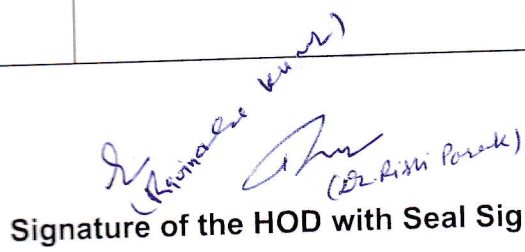 Kumar)
(Dr. Rishi Parak)
Signature of the HOD with Seal Sig